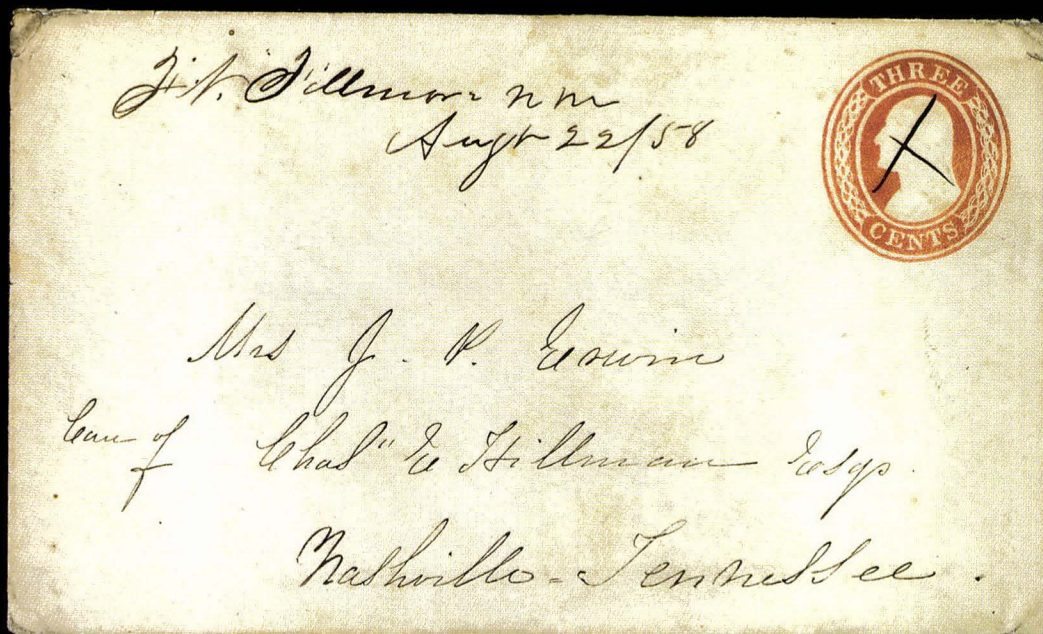 Ft. Fillmore N M
Augt 22/58
THREE
CENTS
Mrs J. P. Erwin
Care of Chas" E Hillman Esqr.
Nashville - Tennessee.